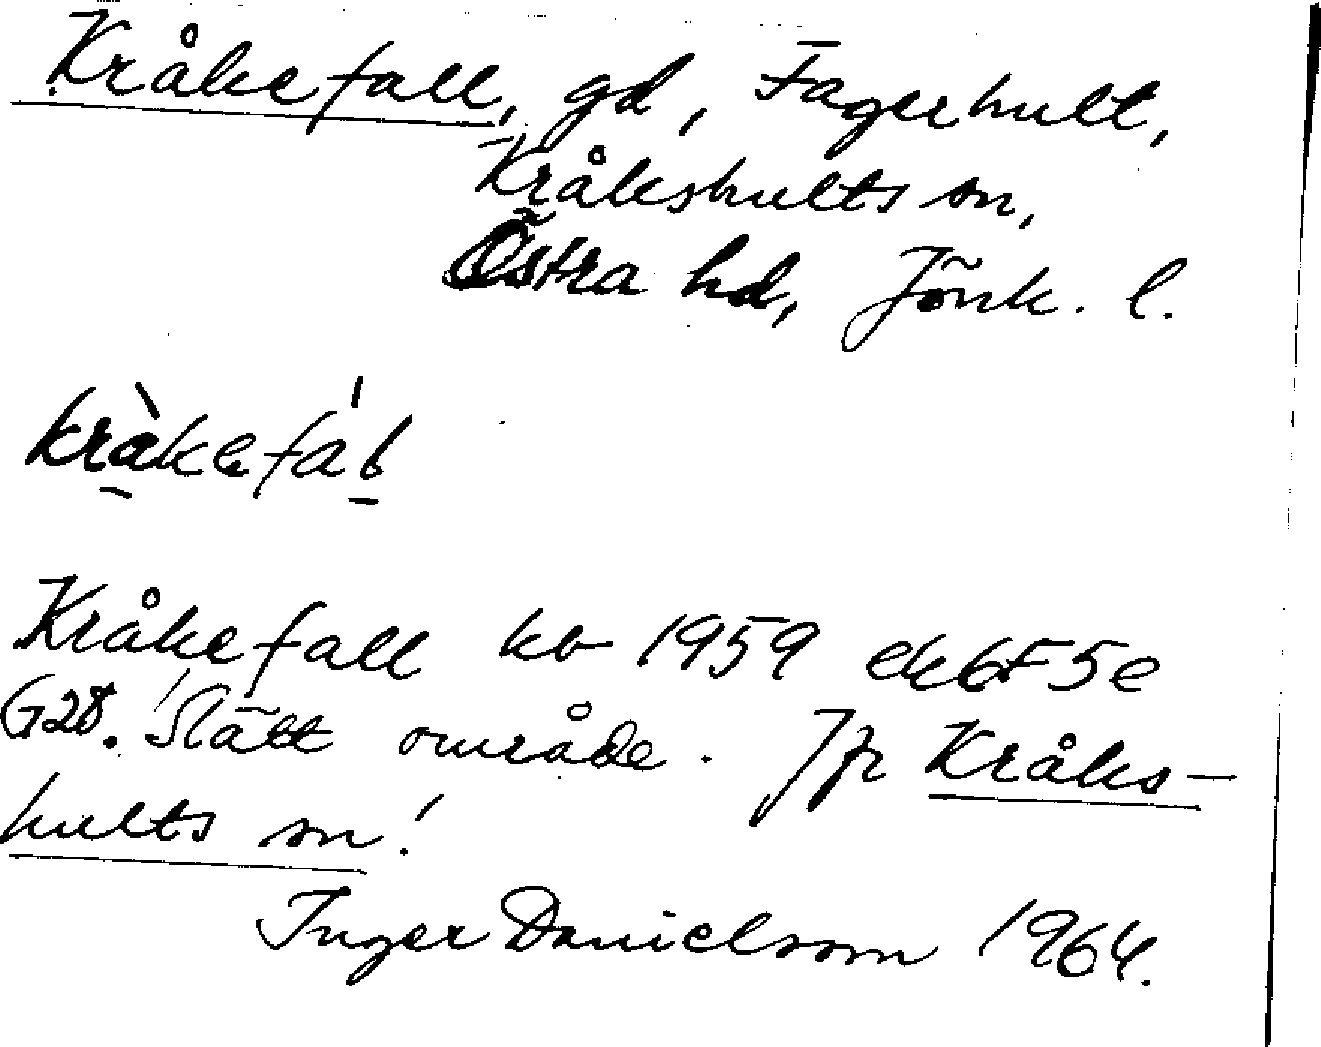 Kråkefall, gd, Fagerhult,
Kråkshults sn,
Östra hd, Jönk. l.
kràkefáł
Kråkefall kb 1959 ek 6F5e
G28. Slätt område. Jfr Kråks-
hults sn!
Inger Danielsson 1964.